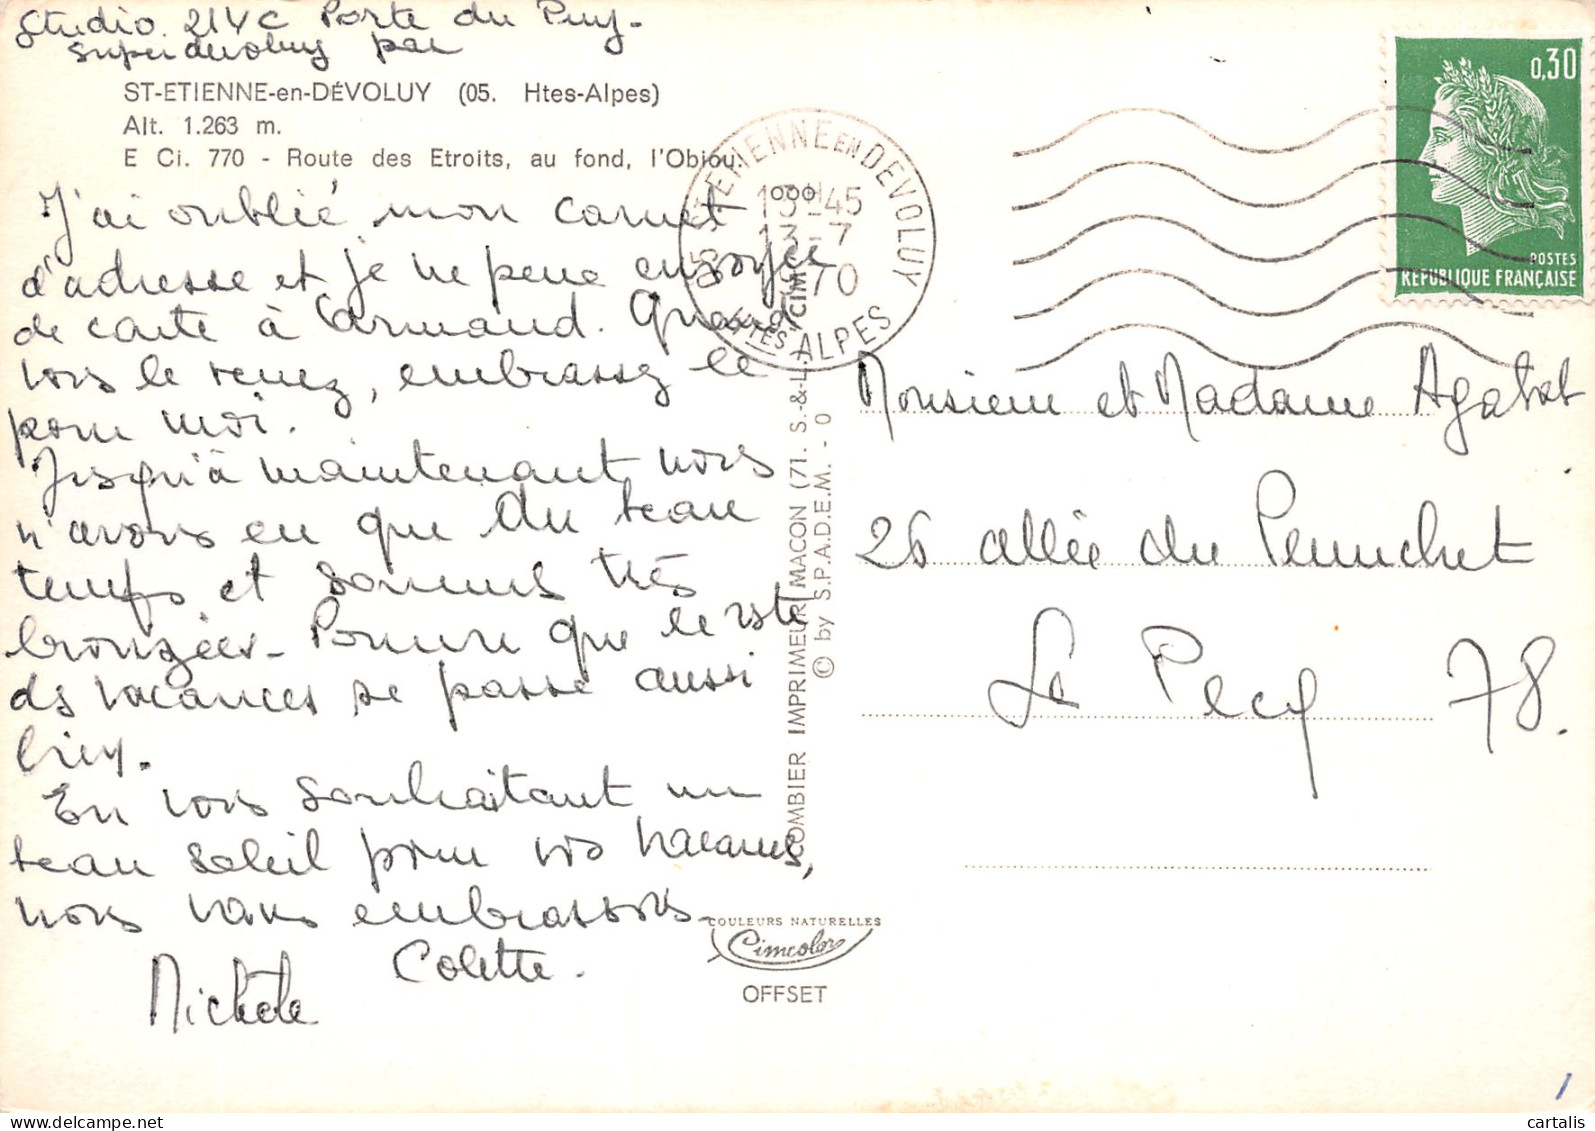 Studio 214C Porte du Puy-
Superdevoluy par
ST-ETIENNE-en-DÉVOLUY (05. Htes-Alpes)
Alt. 1.263 m.
E Ci. 770 - Route des Etroits, au fond, l'Obiou.
J'ai oublié mon carnet
d'adresse et je ne peux envoyer
de carte à Armand. Quand
vous le verrez, embrassez le
pour moi.
Jusqu'à maintenant nous
n'avons eu que du beau
temps et sommes très
bronzées - Pourvu que le reste
des vacances se passe aussi
bien.
En vous souhaitant un
beau soleil pour vos vacances,
nous vous embrassons.
Michèle Colette.
ETIENNE EN DEVOLUY
13-45
13-7
1970
HTES ALPES
0,30
POSTES
REPUBLIQUE FRANÇAISE
Monsieur et Madame Agabet
26 allée du
Le Pecq 78.
COMBIER IMPRIMEUR MACON (71. S.-&-L.) CIM
© by S.P.A.D.E.M. - 0
COULEURS NATURELLES
Cimcolor
OFFSET
1
cartalis delcampe.net